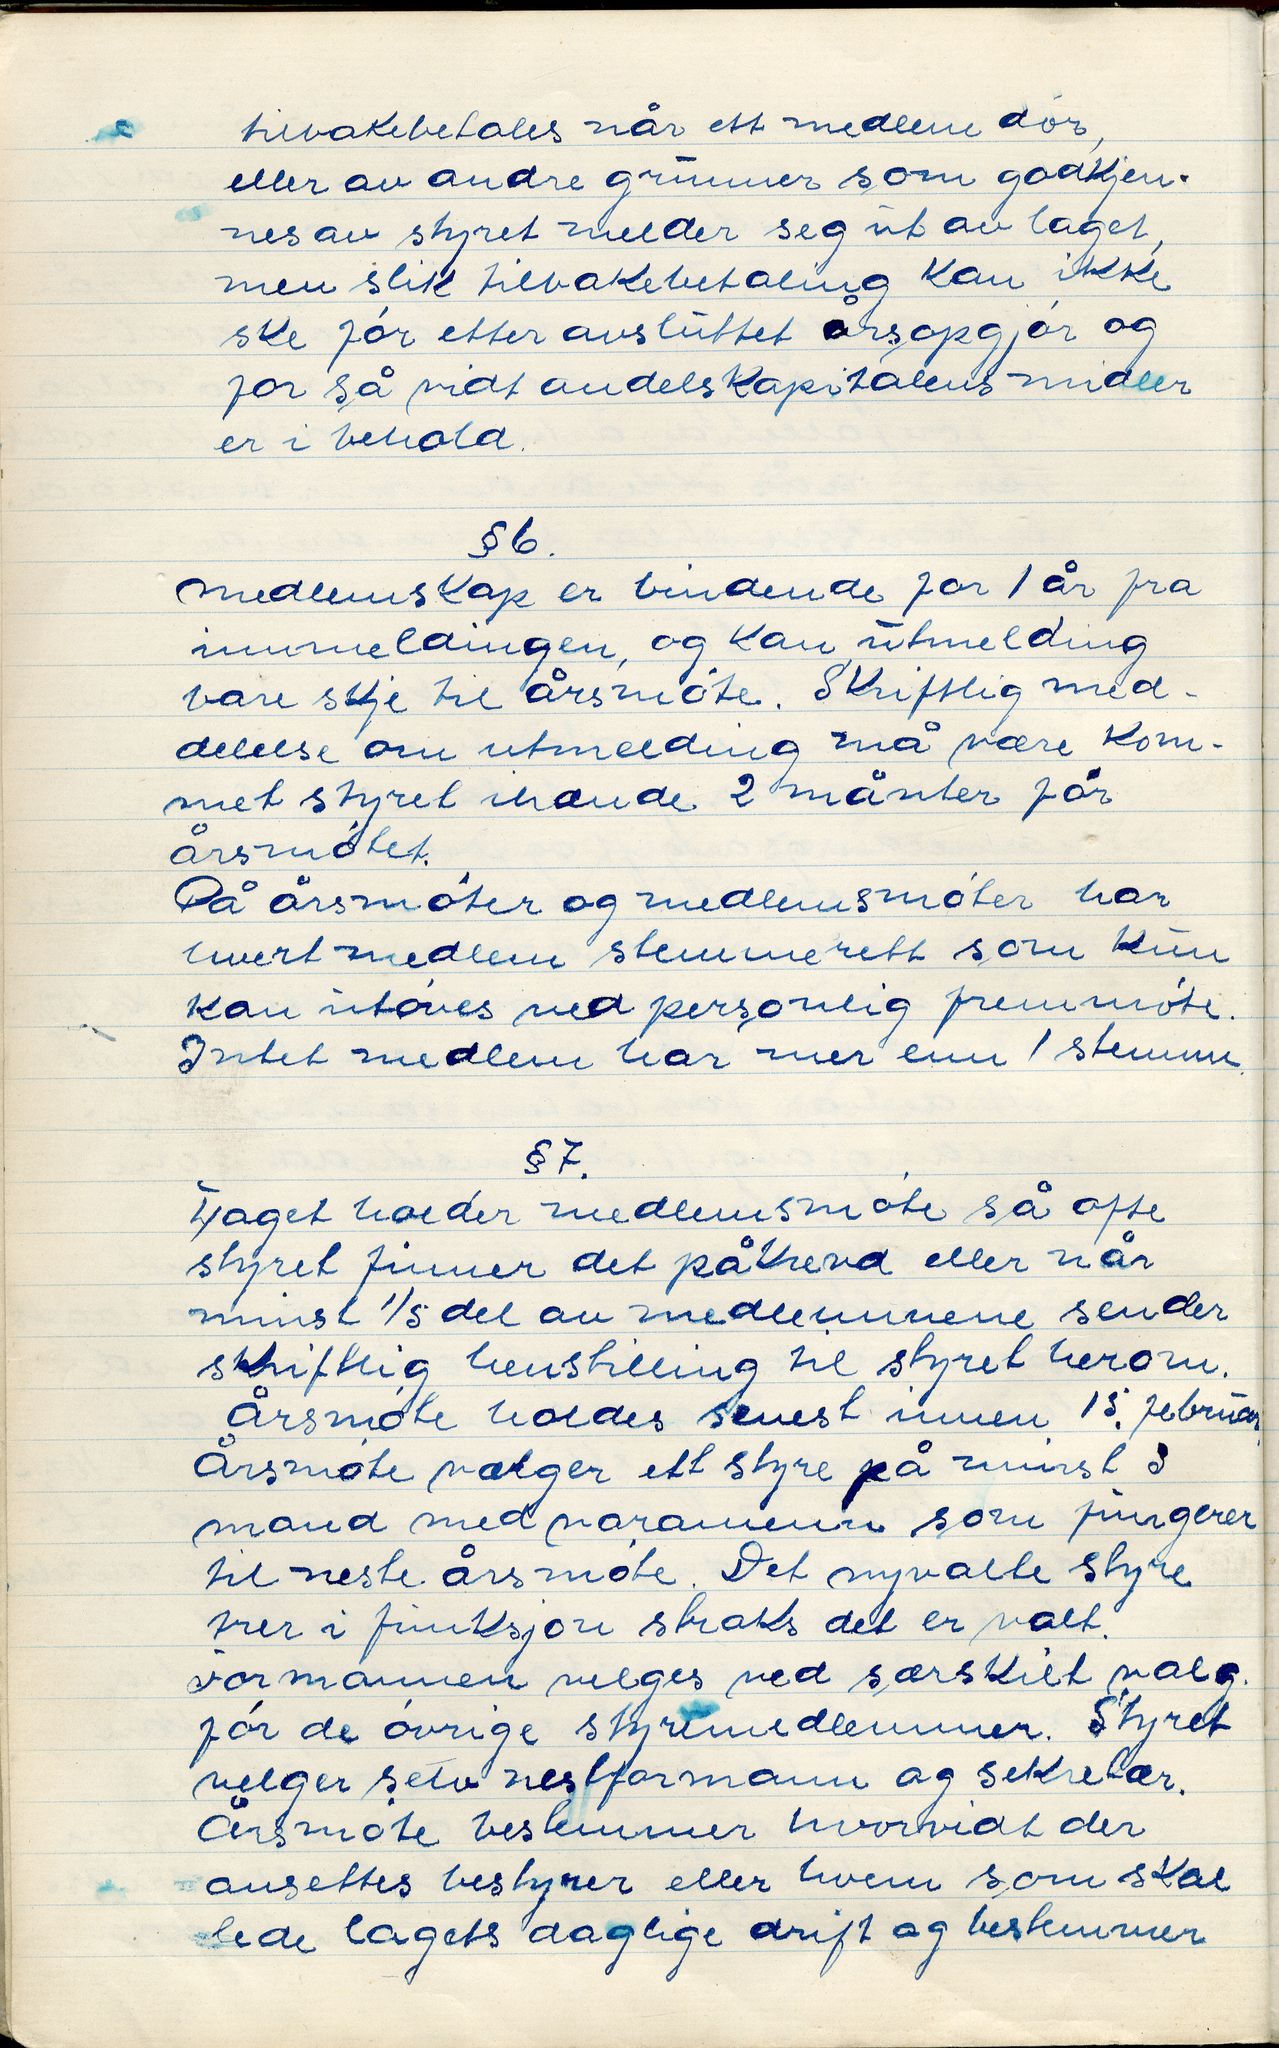 tilbakebetales når ett medlem dør,
eller av andre grunner som godkjen-
nes av styret melder seg ut av laget,
men slik tilbakebetaling kan ikke
ske før etter avsluttet årsopgjør og
for så vidt andelskapitalens midler
er i behold.
§ 6.
Medlemskap er bindende for 1 år fra
innmeldingen, og kan utmelding
bare skje til årsmøte. Skriftlig med-
delelse om utmelding må være kom-
met styret ihende 2 månter før
årsmøtet.
På årsmøter og medlemsmøter har
hvert medlem stemmerett som kun
kan utøves ved personlig fremmøte.
Intet medlem har mer enn 1 stemme.
§ 7.
Laget holder medlemsmøte så ofte
styret finner det påkrevd eller når
minst 1/5 del av medlemmene sender
skriftlig henstilling til styret herom.
Årsmøte holdes senest innen 15. februar.
Årsmøte velger ett styre på minst 3
mand med varamenn som fungerer
til neste årsmøte. Det nyvalte styre
trer i funksjon straks det er valt.
Formannen velges ved særskilt valg.
før de øvrige styremedlemmer. Styret
velger selv nestformann og sekretær.
Årsmøte bestemmer hvorvidt der
ansettes bestyrer eller hvem som skal
lede lagets daglige drift og bestemmer